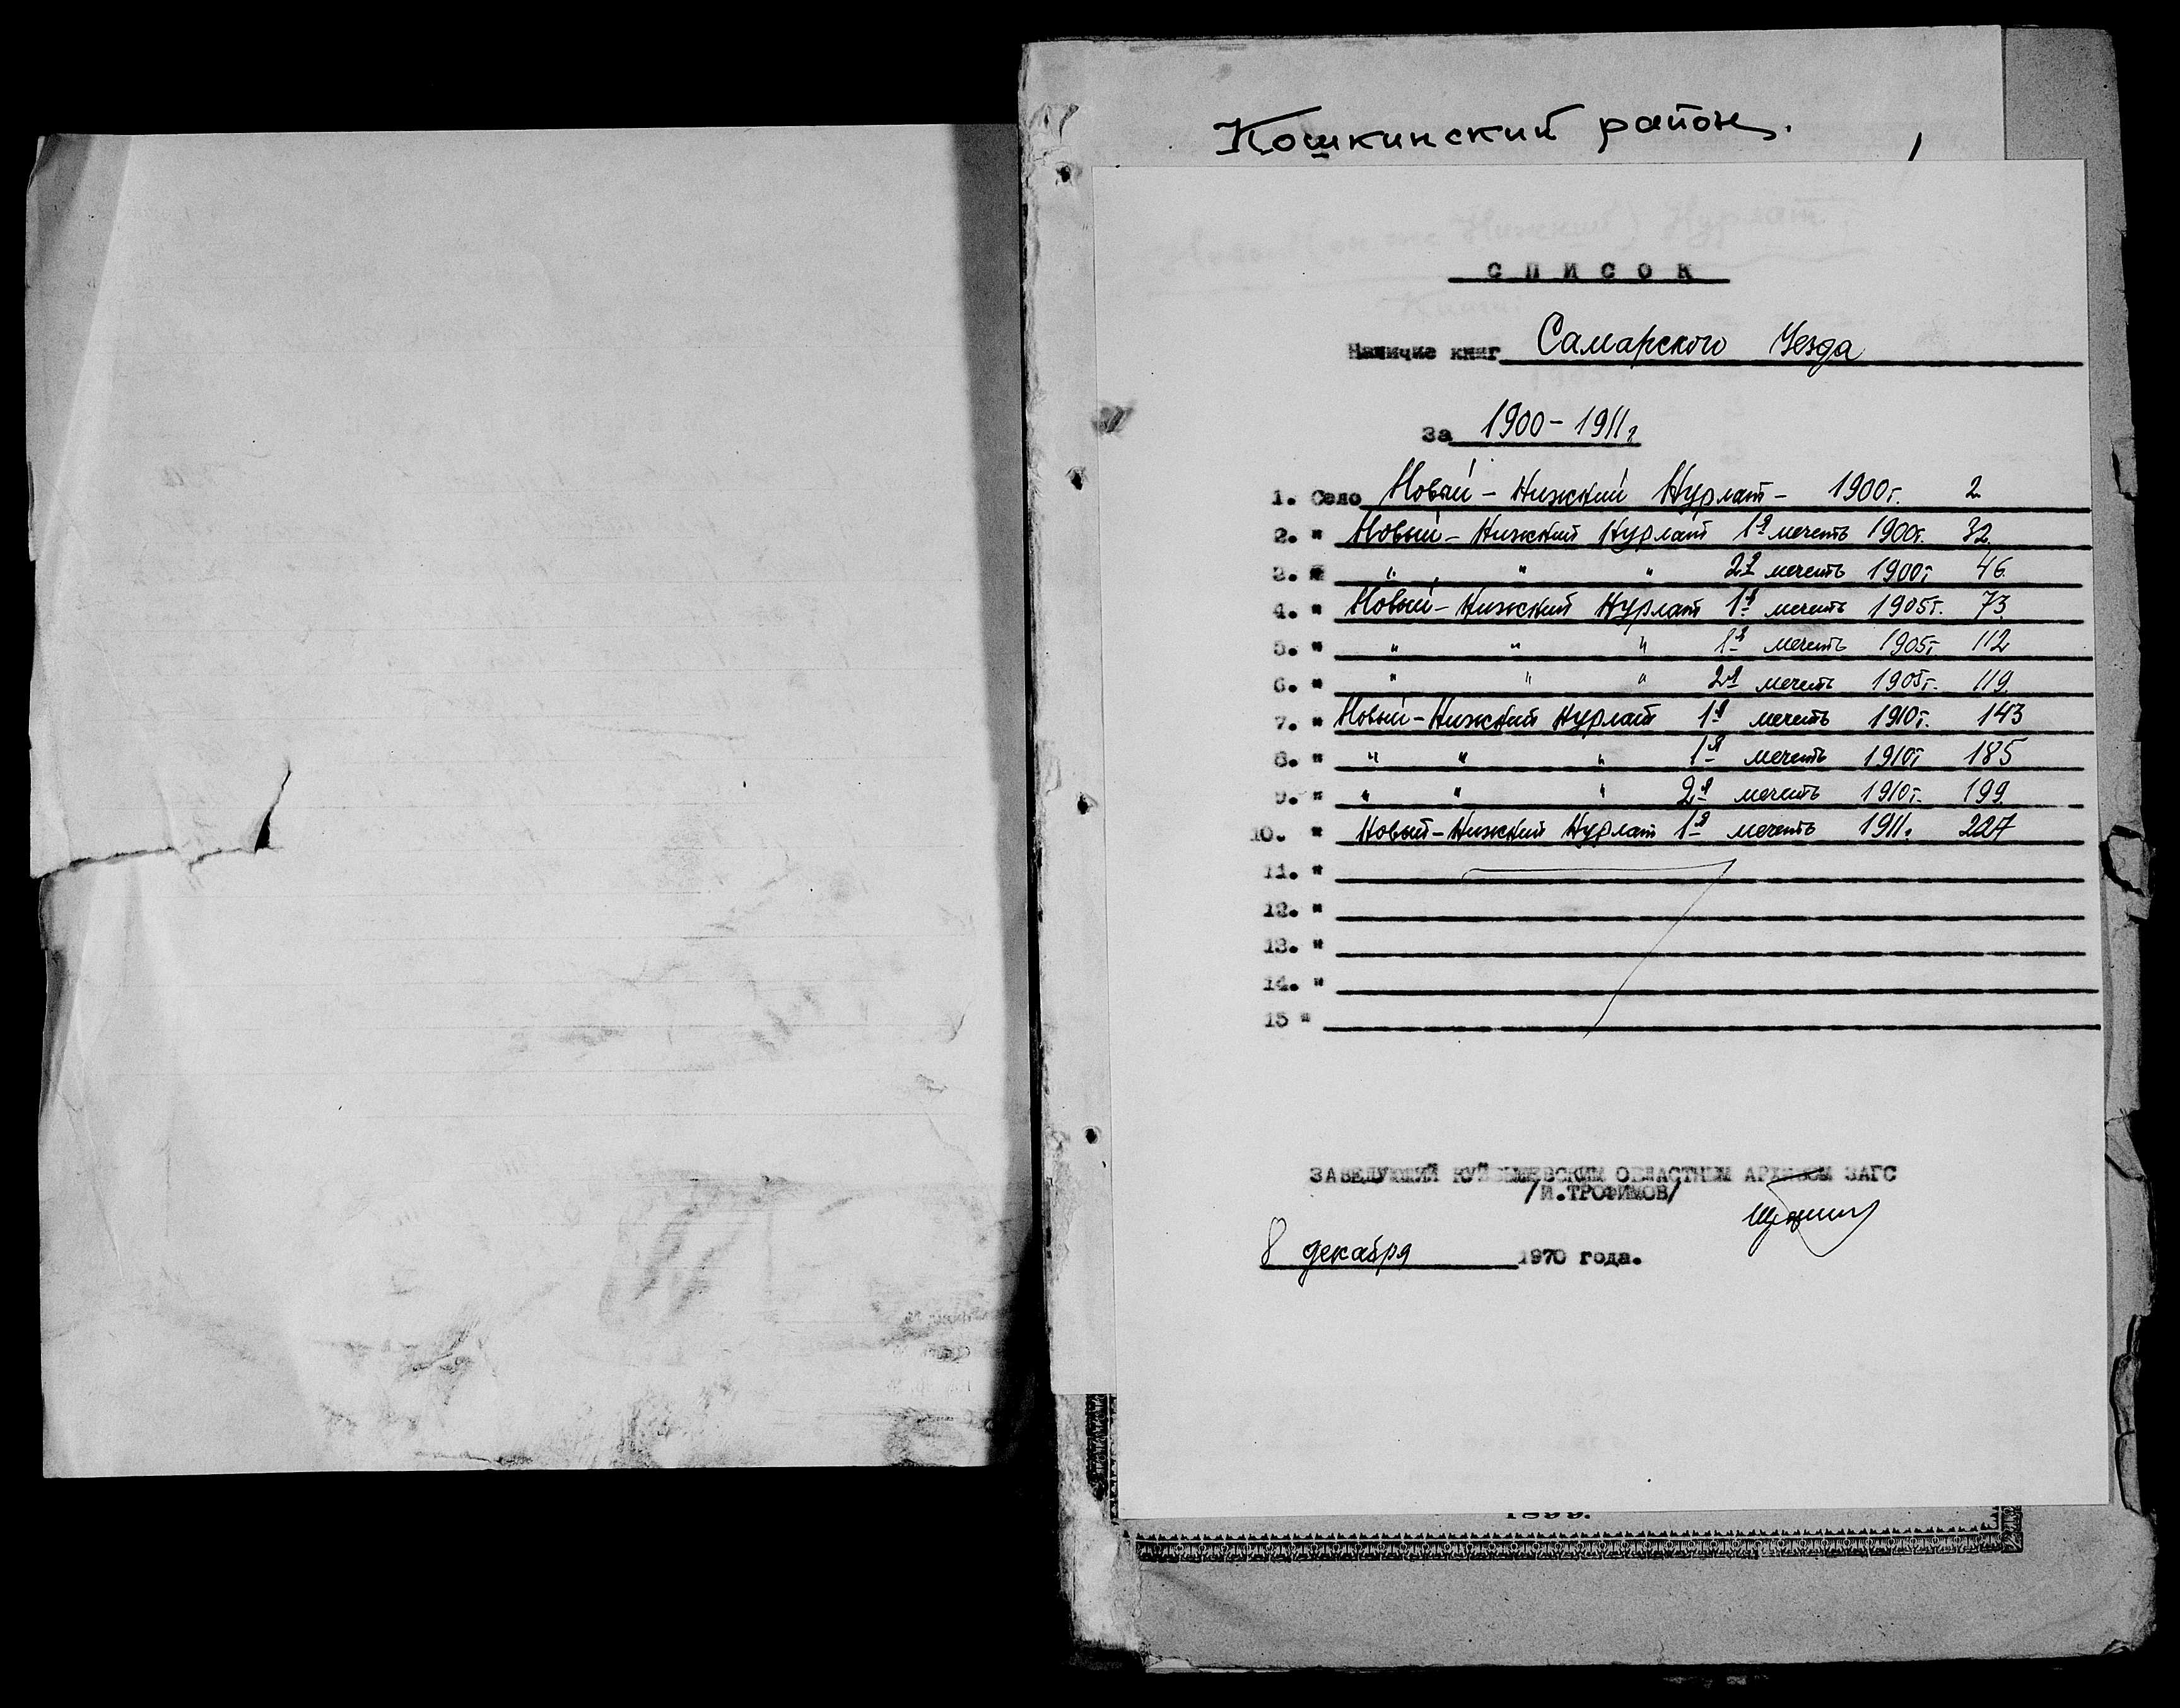 Кошкинский район.
1
СПИСОК
Наличие книг Самарского Уезда
За 1900-1911г
1. Село Новый-Нижний Нурлат- 1900г. 2
2. " Новый-Нижний Нурлат 1я мечеть 1900г. 32
3. " " " " 2я мечеть 1900г 46
4. " Новый-Нижний Нурлат 1я мечеть 1905г. 73
5. " " " " 1я мечеть 1905г 112
6. " " " " 2я мечеть 1905г. 119
7. " Новый-Нижний Нурлат 1я мечеть 1910г. 143
8. " " " " 1я мечеть 1910г 185
9. " " " " 2я мечеть 1910г. 199
10. " Новый-Нижний Нурлат 1я мечеть 1911г 227
11. "
12. "
13. "
14. "
15 "
ЗАВЕДУЮЩИЙ КУЙБЫШЕВСКИМ ОБЛАСТНЫМ АРХИВОМ ЗАГС
/И.ТРОФИМОВ/
8 декабря 1970 года.
1899.